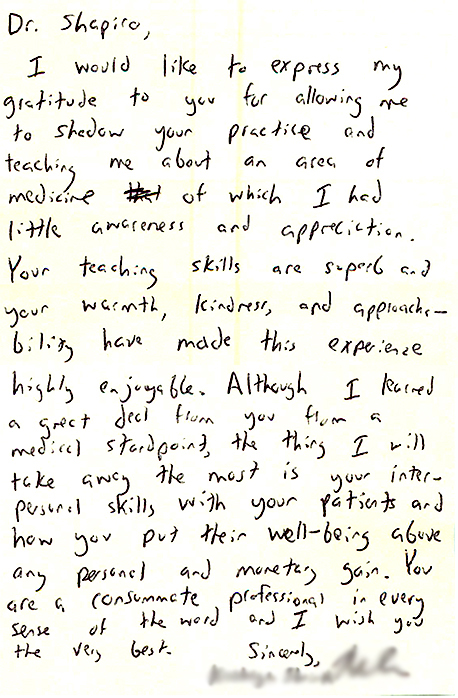 Dr. Shapiro,
I would like to express my
gratitude to you for allowing me
to shadow your practice and
teaching me about an area of
medicine that of which I had
little awareness and appreciation.
Your teaching skills are superb and
your warmth, kindness, and approacha-
bility have made this experience
highly enjoyable. Although I learned
a great deal from you from a
medical standpoint, the thing I will
take away the most is your inter-
personal skills with your patients and
how you put their well-being above
any personal and monetary gain. You
are a consummate professional in every
sense of the word and I wish you
the very best. Sincerely,